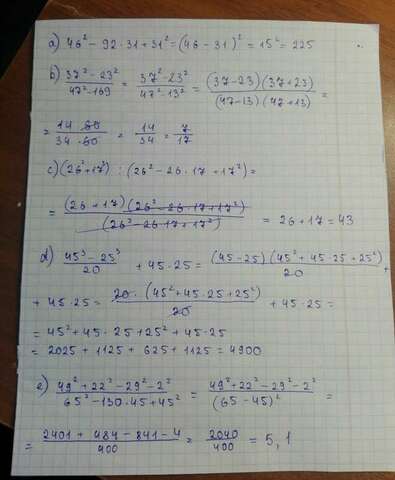 a) 46² - 92 · 31 + 31² = (46 - 31)² = 15² = 225
b) (37² - 23²)/(47² - 169) = (37² - 23²)/(47² - 13²) = ((37 - 23)(37 + 23))/((47 - 13)(47 + 13)) =
= (14 · 60)/(34 · 60) = 14/34 = 7/17
c) (26³ + 17³) : (26² - 26 · 17 + 17²) =
= ((26 + 17)(26² - 26 · 17 + 17²))/((26² - 26 · 17 + 17²)) = 26 + 17 = 43
d) (45³ - 25³)/20 + 45 · 25 = ((45 - 25)(45² + 45 · 25 + 25²))/20 +
+ 45 · 25 = (20 · (45² + 45 · 25 + 25²))/20 + 45 · 25 =
= 45² + 45 · 25 + 25² + 45 · 25
= 2025 + 1125 + 625 + 1125 = 4900
e) (49² + 22² - 29² - 2²)/(65² - 130 · 45 + 45²) = (49² + 22² - 29² - 2²)/(65 - 45)² =
= (2401 + 484 - 841 - 4)/400 = 2040/400 = 5,1